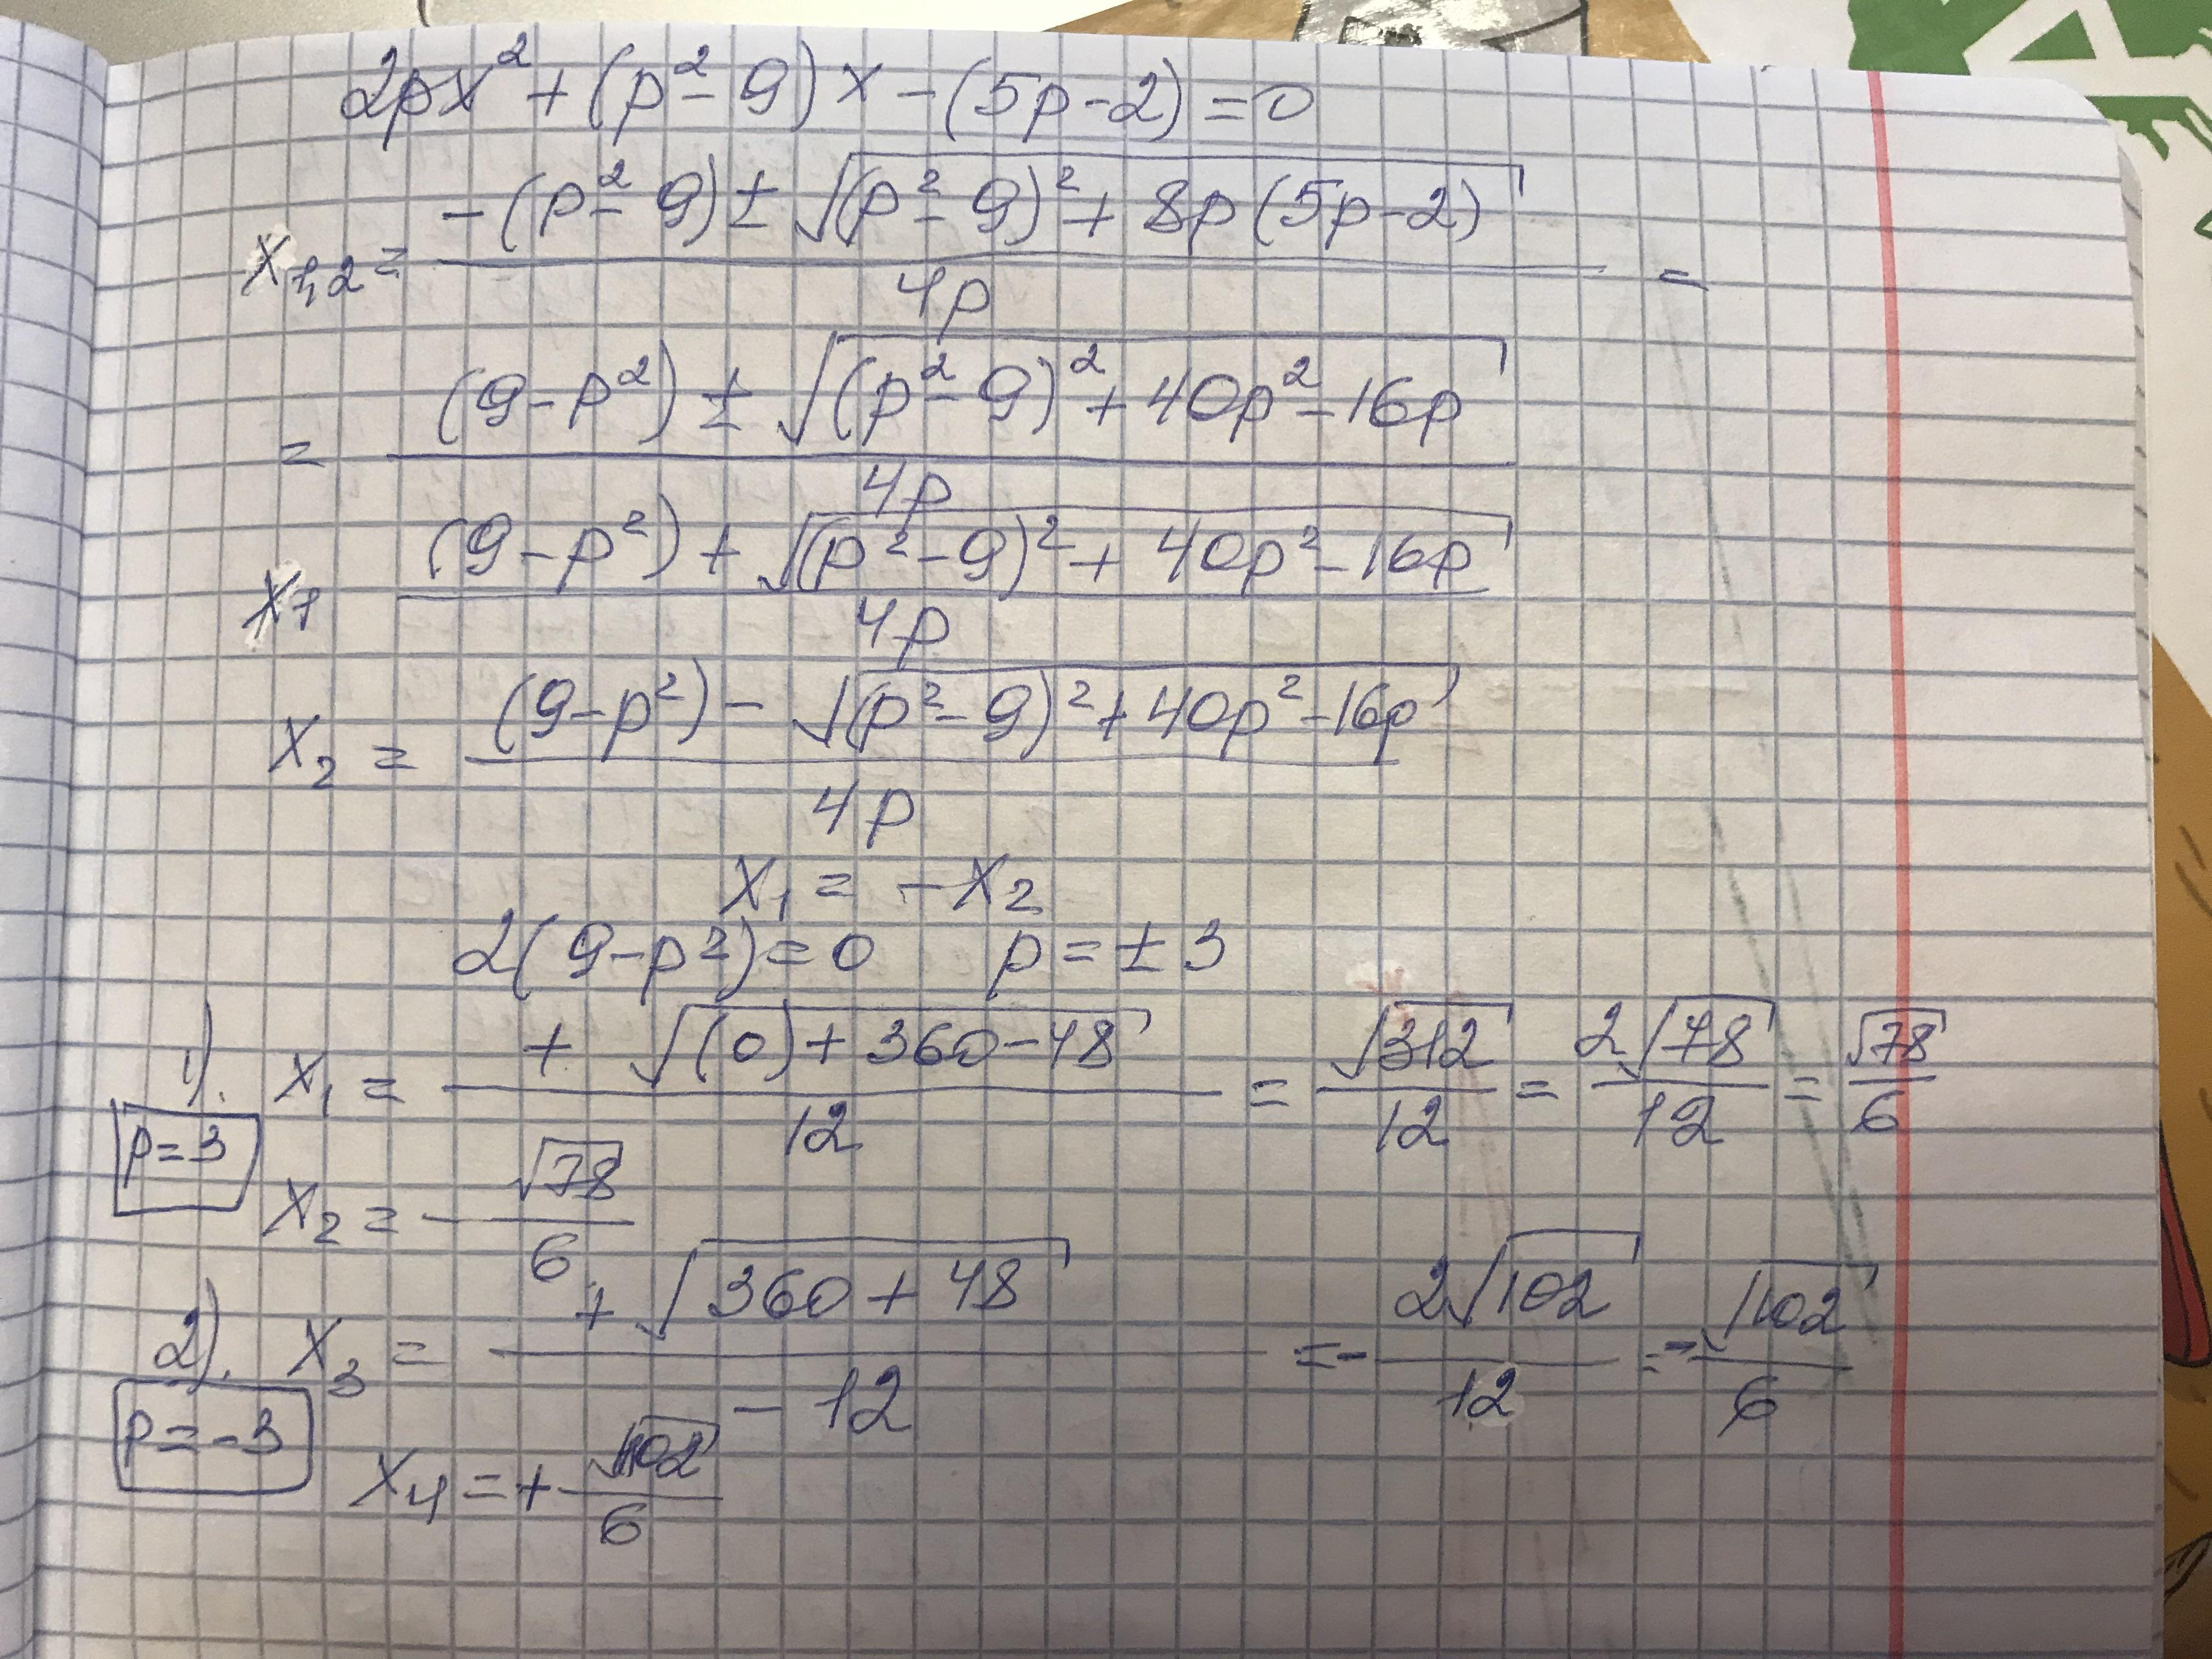 2px² + (p² - 9)x - (5p - 2) = 0
x₁,₂ = (-(p² - 9) ± √((p² - 9)² + 8p(5p - 2))) / 4p =
= ((9 - p²) ± √((p² - 9)² + 40p² - 16p)) / 4p
x₁ ((9 - p²) + √((p² - 9)² + 40p² - 16p)) / 4p
x₂ = ((9 - p²) - √((p² - 9)² + 40p² - 16p)) / 4p
x₁ = -x₂
2(9 - p²) = 0 p = ±3
1). x₁ = (+ √((0) + 360 - 48)) / 12 = √312 / 12 = 2√78 / 12 = √78 / 6
p = 3
x₂ = - √78 / 6
2). x₃ = (+ √(360 + 48)) / -12 = - 2√102 / 12 = - √102 / 6
p = -3
x₄ = + √102 / 6